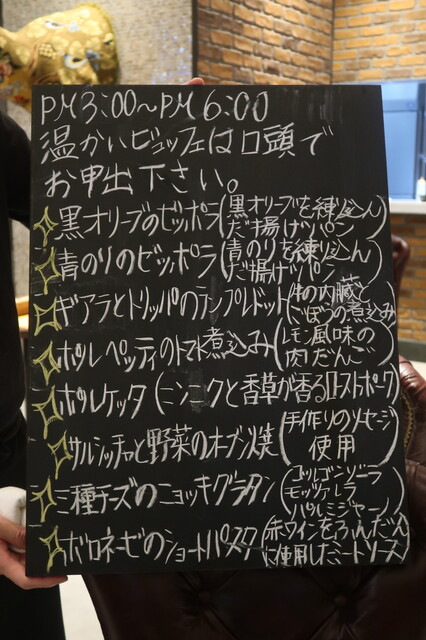 PM3:00~PM6:00
温かいビュッフェは口頭で
お申出下さい。
黒オリーブのゼッポラ(黒オリーブを練り込んだ揚げパン)
青のりのゼッポラ(青のりを練り込んだ揚げパン)
ギアラとトリッパのランプレドット(牛の内臓とごぼうの煮込み)
ポルペッティのトマト煮込み(レモン風味の肉だんご)
ポルケッタ(ニンニクと香草が香るローストポーク)
サルシッチャと野菜のオーブン焼(手作りソーセージ使用)
三種チーズのニョッキグラタン(ゴルゴンゾーラ モッツァレラ パルミジャーノ)
ボロネーゼのショートパスタ(赤ワインをふんだんに使用したミートソース)